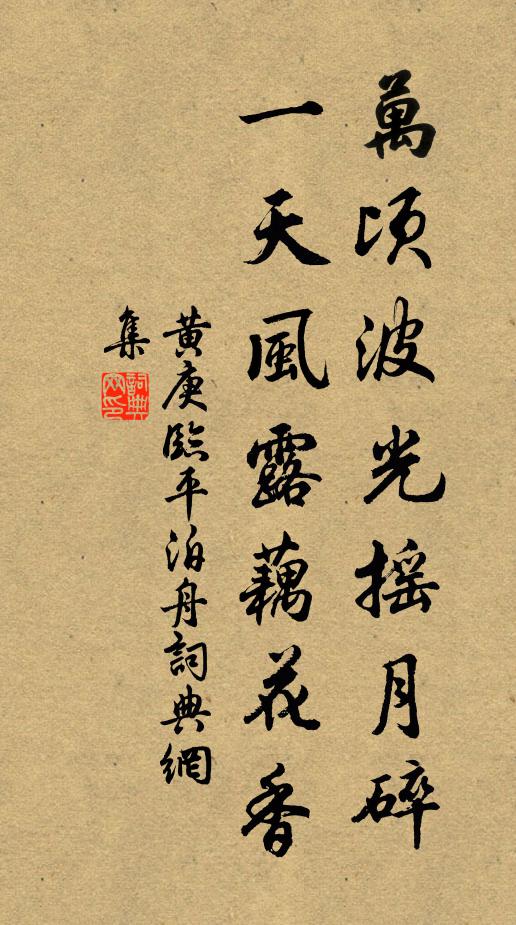 萬頃波光摇月碎
一天風露藕花香
黄庚臨平泊舟詞典網
集
詞典
网印